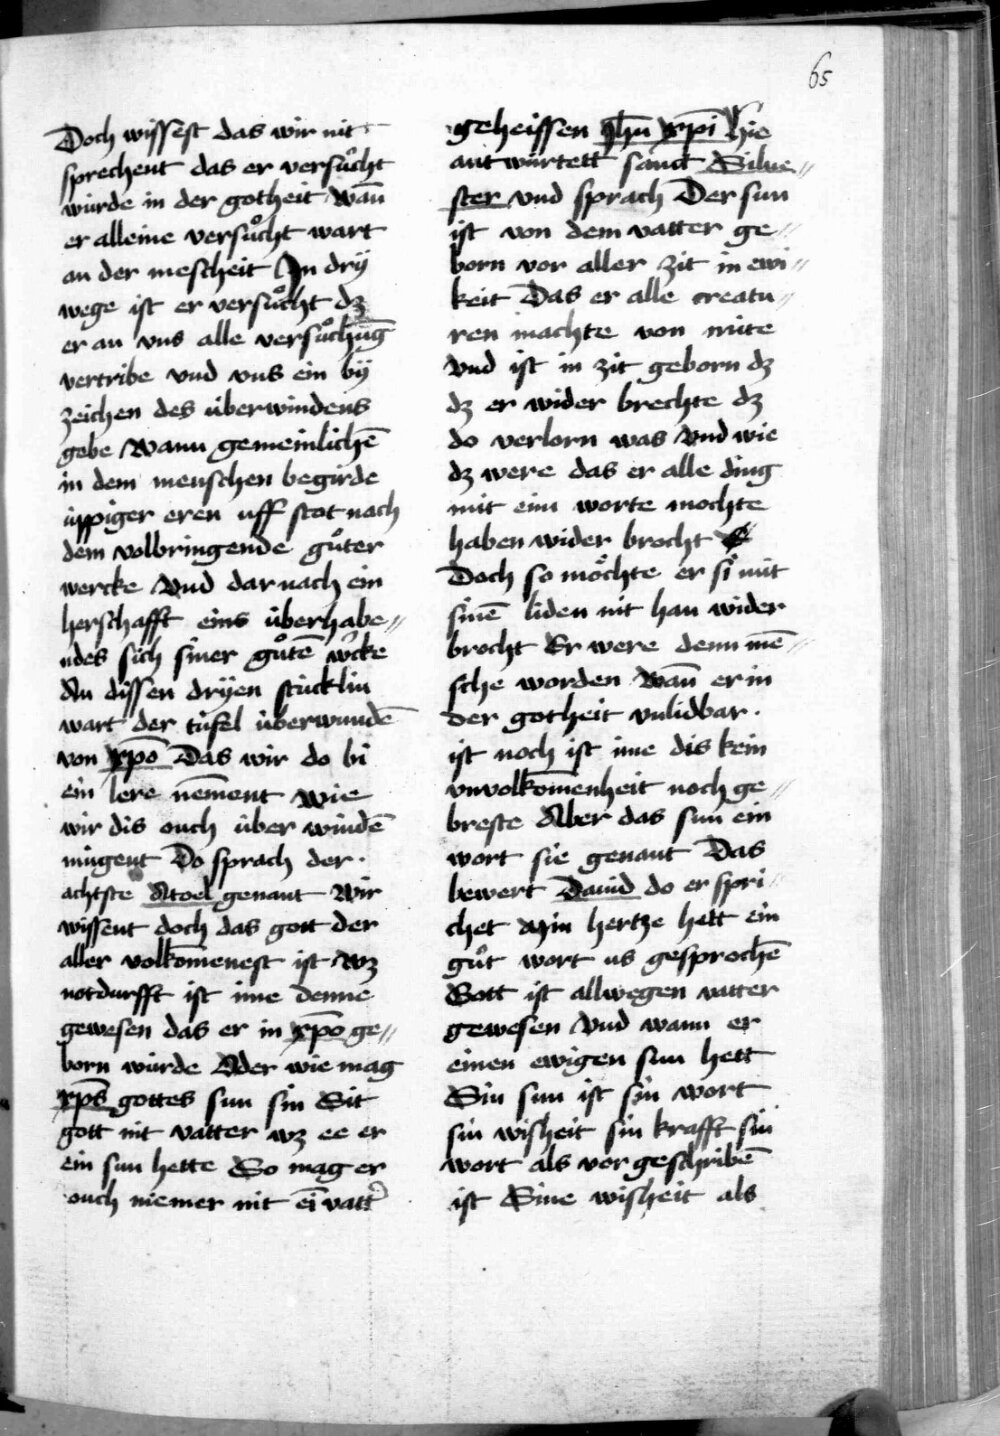 65
Doch wissest das wir nit
sprechent das er versuͦcht
wúrde in der gotheit wān
er alleine versuͦcht wart
an der mescheit In drÿ
wege ist er versuͦcht dz
er an vns alle versuͦchūg
vertribe vnd vns ein bÿ
zeichen des úberwindens
gebe Wann gemeinlichē
in dem menschen begirde
úppiger eren uff stot nach
dem volbringende guͦter
wercke Vnd dar nach ein
herschafft eins úberhabe〃
ndes sich siner guͦtē w̉cke
An dissen drÿen stúcklin
wart der túfel úberwundē
von xp̄o Das wir do bi
ein lere nēment wie
wir dis ouch úber windē
múgent Do sprach der
achtste Atoel genant Wir
wissent doch das gott der
aller volkōmenest ist Wz
notdurfft ist ime denne
gewesen das er in xp̄o ge〃
born wúrde Oder wie mag
xp̄s gottes sun sin Sit
gott nit vatter wz ee er
ein sun hette So mag er
ouch niemer nit eī vatt̉
geheissen Jhū xp̄i Hie
antwúrtett sanct Silue〃
ster vnd sprach Der sun
ist von dem vatter ge〃
born vor aller zit in ewi〃
keit Das er alle creatu〃
ren machte von núte
Vnd ist in zit geborn dz
dz er wider brechte dz
do verlorn was Vnd wie
dz were das er alle ding
mit eim worte mochte
haben wider brocht
Doch so moͤchte er si mit
sinē liden nit han wider
brocht Er were denn mē〃
sche worden Wān er in
der gotheit vnlidbar
ist noch ist ime dis kein
vnvolkōmenheit noch ge〃
breste Aber das sun ein
wort sie genant Das
bewert Dauid do er spri〃
chet Min hertze hett ein
guͦt wort us gesprochē
Gott ist allwegen vatter
gewesen Vnd wann er
einen ewigen sun hett
Sin sun ist sin wort
sin wisheit sin krafft sin
wort als vor geschribē
ist Sine wisheit als